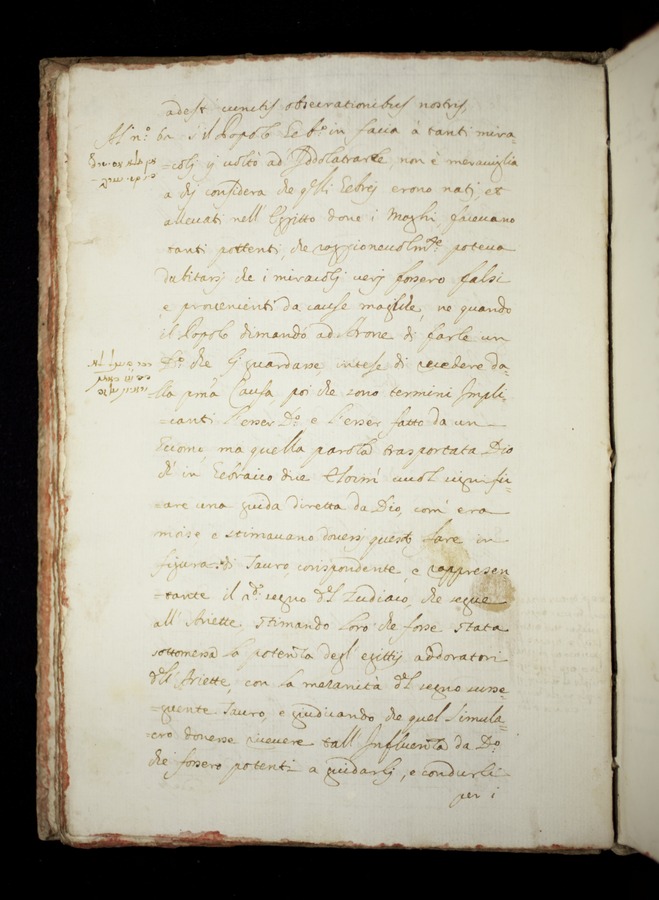 adest cunctis obsecrationibus nostris,
Al n.º 62 S'il Popolo Eb.º in facia à tanti mira-
=colj
ad Iddolatrarle, non è meraviglia
a chi considera che q.lli Eebrej erono natj, et
allevati nell'Egitto dove i Maghi
tanti pottenti, che raggionevolm.te poteva
dubitarsj che i miracolj verj fossero falsi
e provenienti da cause magiche, ne quando
il Popolo dimandò ad Arone di farle un
D.º che G. guardasse intese di recedere da-
=lla pma Causa, poi che sono termini Impli-
=canti l'esser D.º e l'esser fatto da un
Eomo, ma quella parola trasportata Dio
ch' in Eebraico dice Eloim' vuol signifi-
=care una guida diretta da Dio, com' era
moise e stimavano doversi questo fare in
figura di Tauro, corispondente, e rappresen
=tante il 2.º segno del Zudiaco, che segue
all'Ariette, stimando loro che fosse stata
sottomessa la potenza degl' egittij addoratori
dell'Ariette, con la mezanità del segno susse-
=guente Tauro, e giudicando che quel Simula-
=cro dovesse ricevere tall'Influenza da D.º
che fossero potenti a guidarlj, e condurli
per i